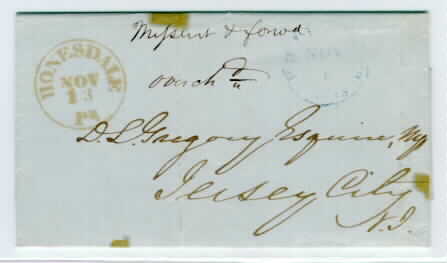 Missent & forwd
HONESDALE
NOV
13
PA
D. L. Gregory Esquire,
Jersey City
N.J.